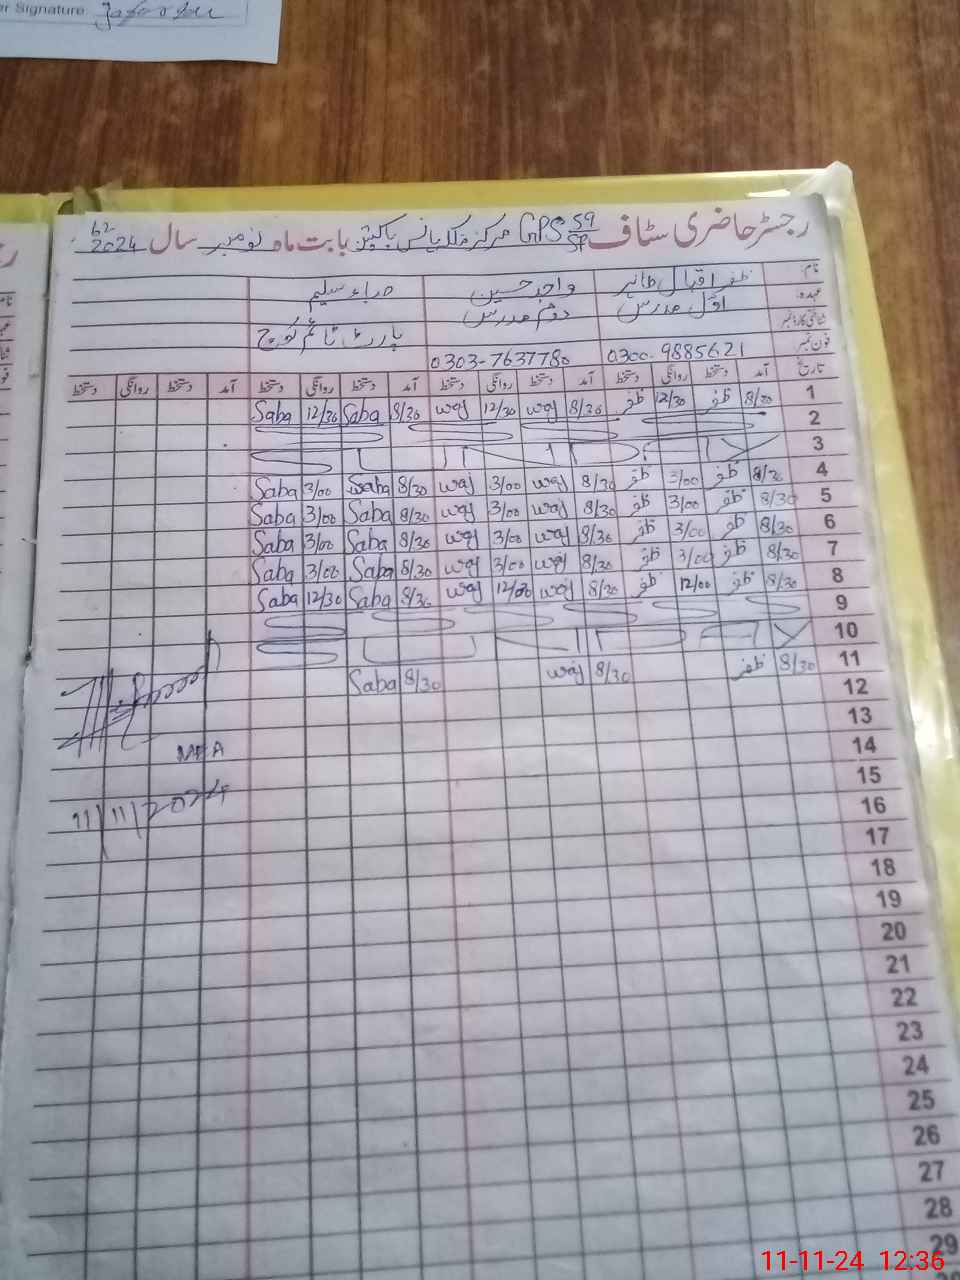 r Signature
رجسٹر حاضری سٹاف GPS 59/SP مرکز ملکہانس پاکپتن بابت ماہ نومبر سال 2024
نام: ظفر اقبال طاہر واجد حسین صباء سلیم
عہدہ: اول مدرس دوم مدرس پارٹ ٹائم کوچ
شناختی کارڈ نمبر
فون نمبر 0300-9885621 0303-7637780
تاریخ آمد دستخط روانگی دستخط آمد دستخط روانگی دستخط آمد دستخط روانگی دستخط آمد دستخط روانگی دستخط
1 8/30 ظفر 12/30 ظفر 8/30 waj 12/30 waj 8/30 Saba 12/30 Saba
2
3
4 8/30 ظفر 3/00 ظفر 8/30 waj 3/00 waj 8/30 Saba 3/00 Saba
5 8/30 ظفر 3/00 ظفر 8/30 waj 3/00 waj 8/30 Saba 3/00 Saba
6 8/30 ظفر 3/00 ظفر 8/30 waj 3/00 waj 8/30 Saba 3/00 Saba
7 8/30 ظفر 3/00 ظفر 8/30 waj 3/00 waj 8/30 Saba 3/00 Saba
8 8/30 ظفر 12/00 ظفر 8/30 waj 12/30 waj 8/30 Saba 12/30 Saba
9
10
11 8/30 ظفر 8/30 waj 8/30 Saba
12
13
14 MEA
15
16 11/11/2024
17
18
19
20
21
22
23
24
25
26
27
28
29
11-11-24 12:36